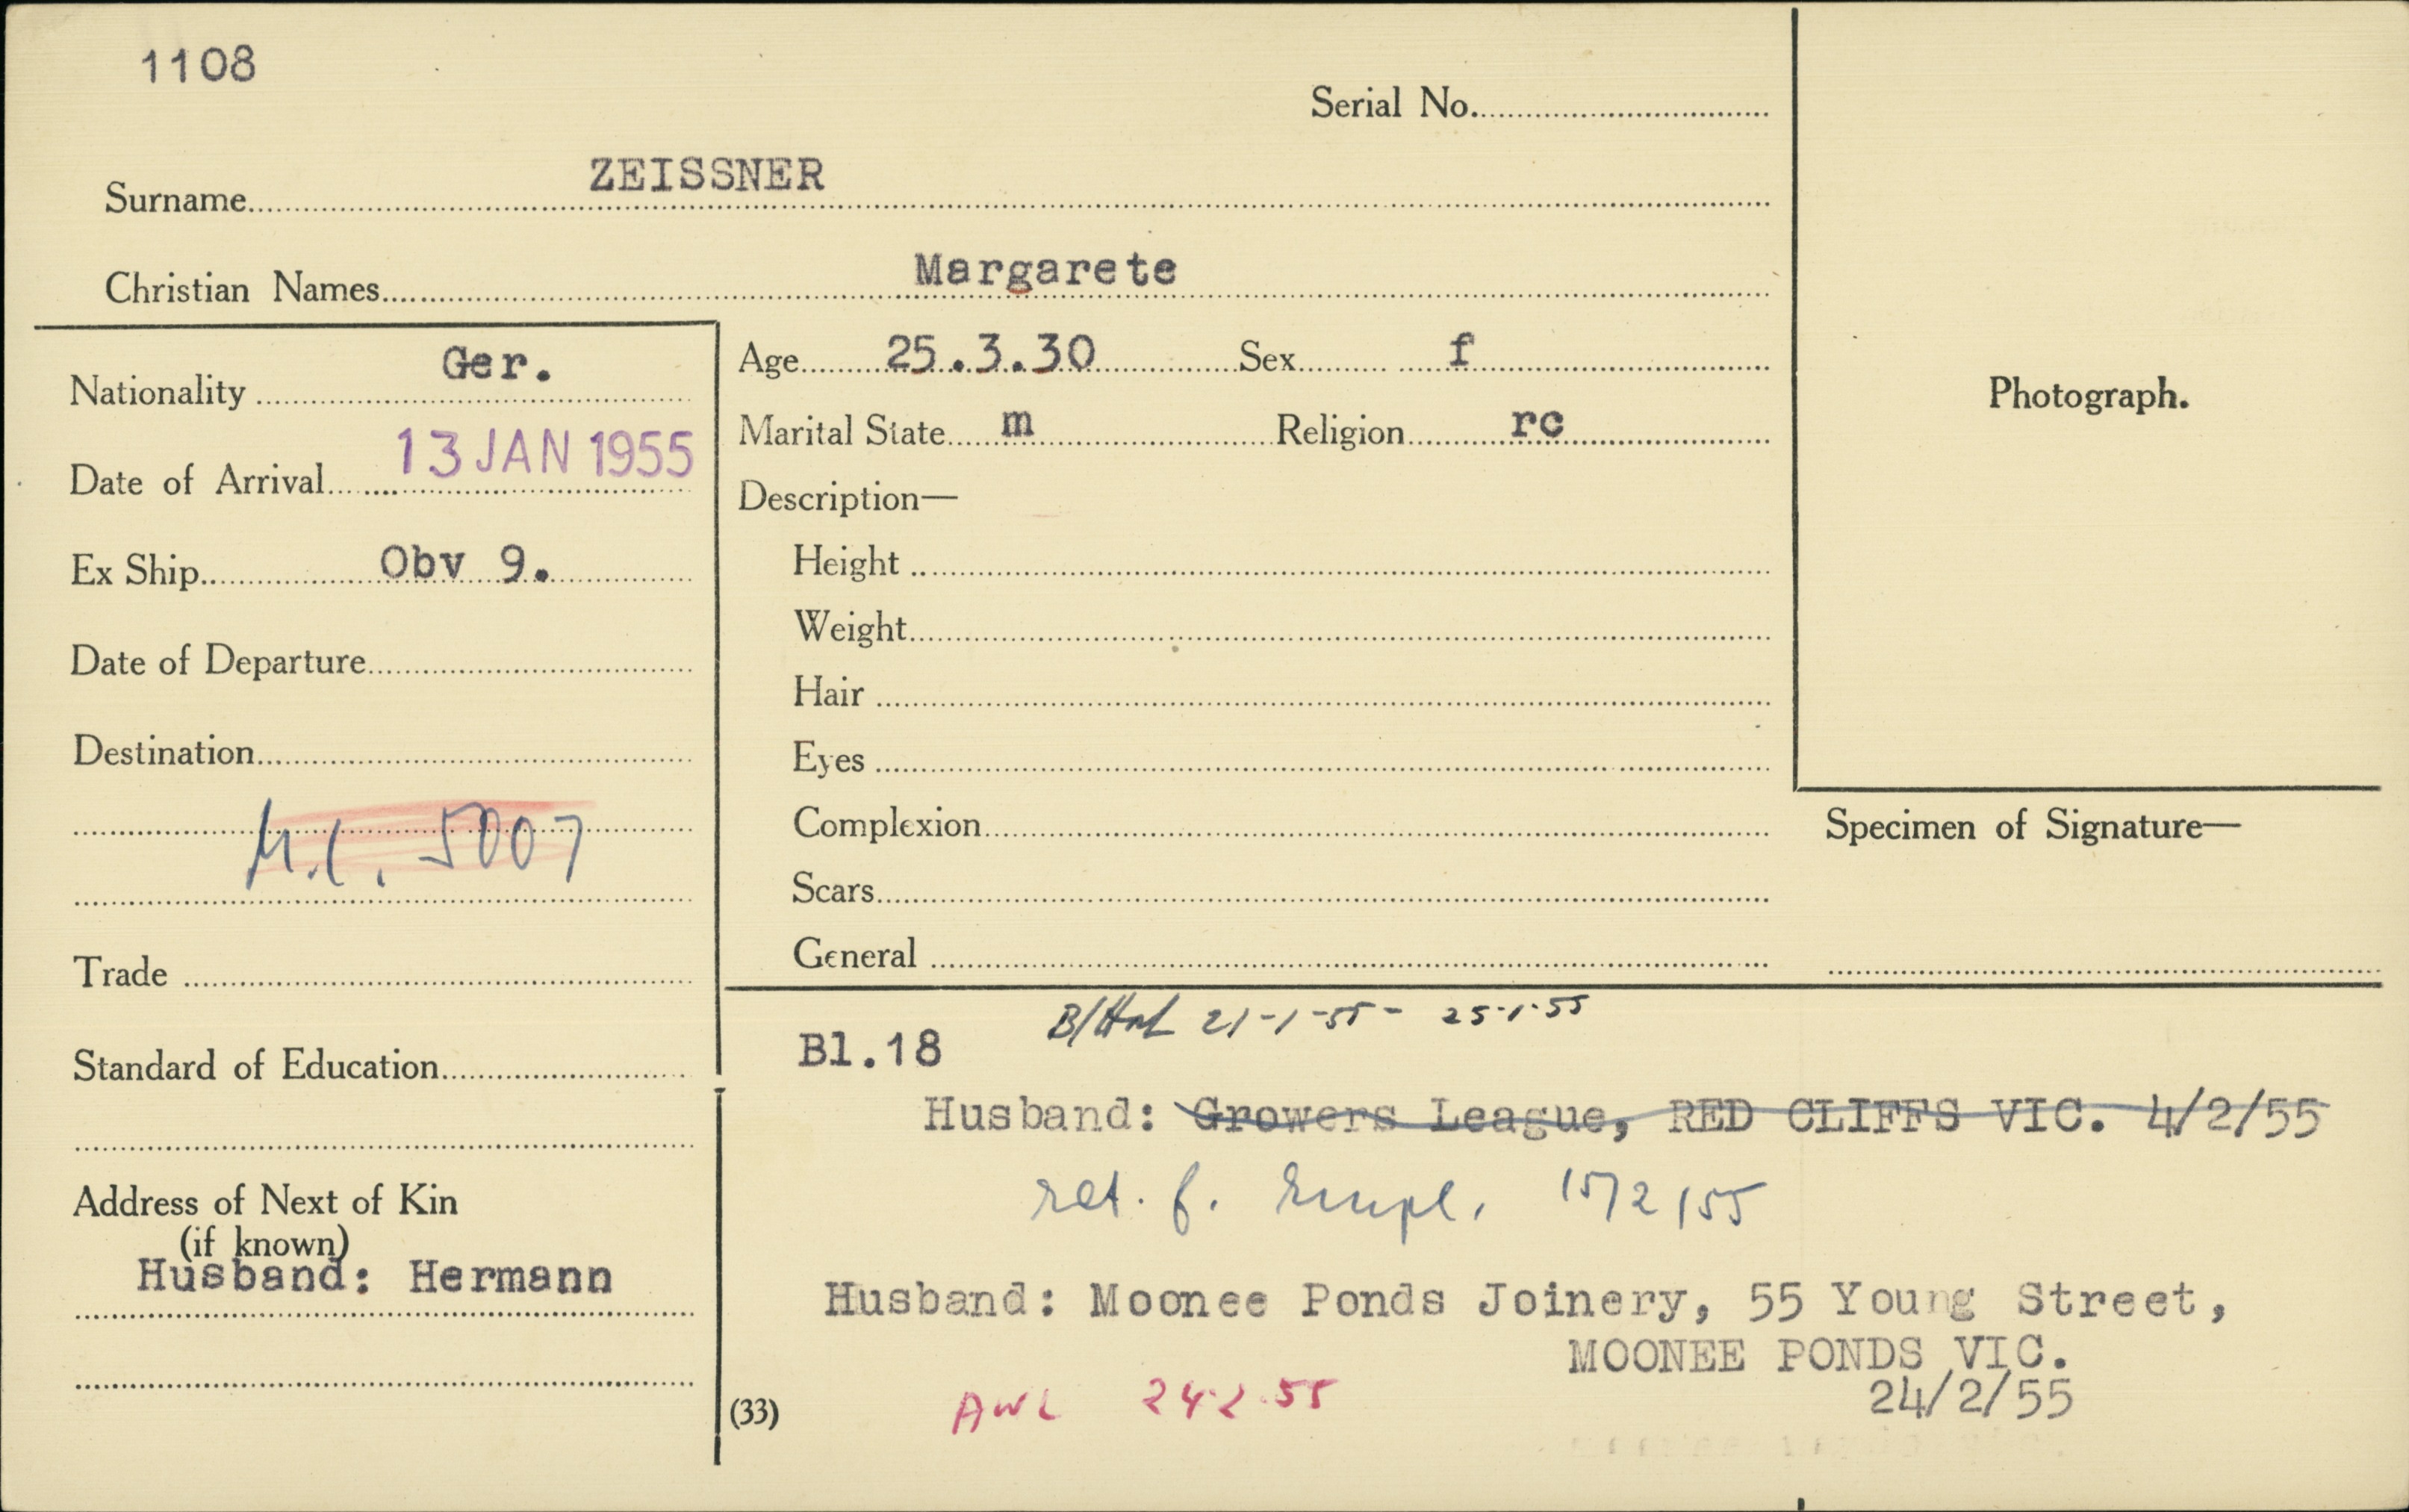 1108
Serial No.
Surname ZEISSNER
Christian Names Margarete
Nationality Ger.
Date of Arrival 13 JAN 1955
Ex Ship Obv 9.
Date of Departure
Destination
5007
Trade
Standard of Education
Address of Next of Kin
(if known)
Husband: Hermann
Age 25.3.30 Sex f
Marital State m Religion rc
Description—
Height
Weight
Hair
Eyes
Complexion
Scars
General
Photograph.
Specimen of Signature—
21-1-55- 25-1-55
Bl.18
Husband: Growers League, RED CLIFFS VIC. 4/2/55
ret. f. Empl. 15/2/55
Husband: Moonee Ponds Joinery, 55 Young Street,
MOONEE PONDS VIC.
24/2/55
(33)
AWL 24.2.55